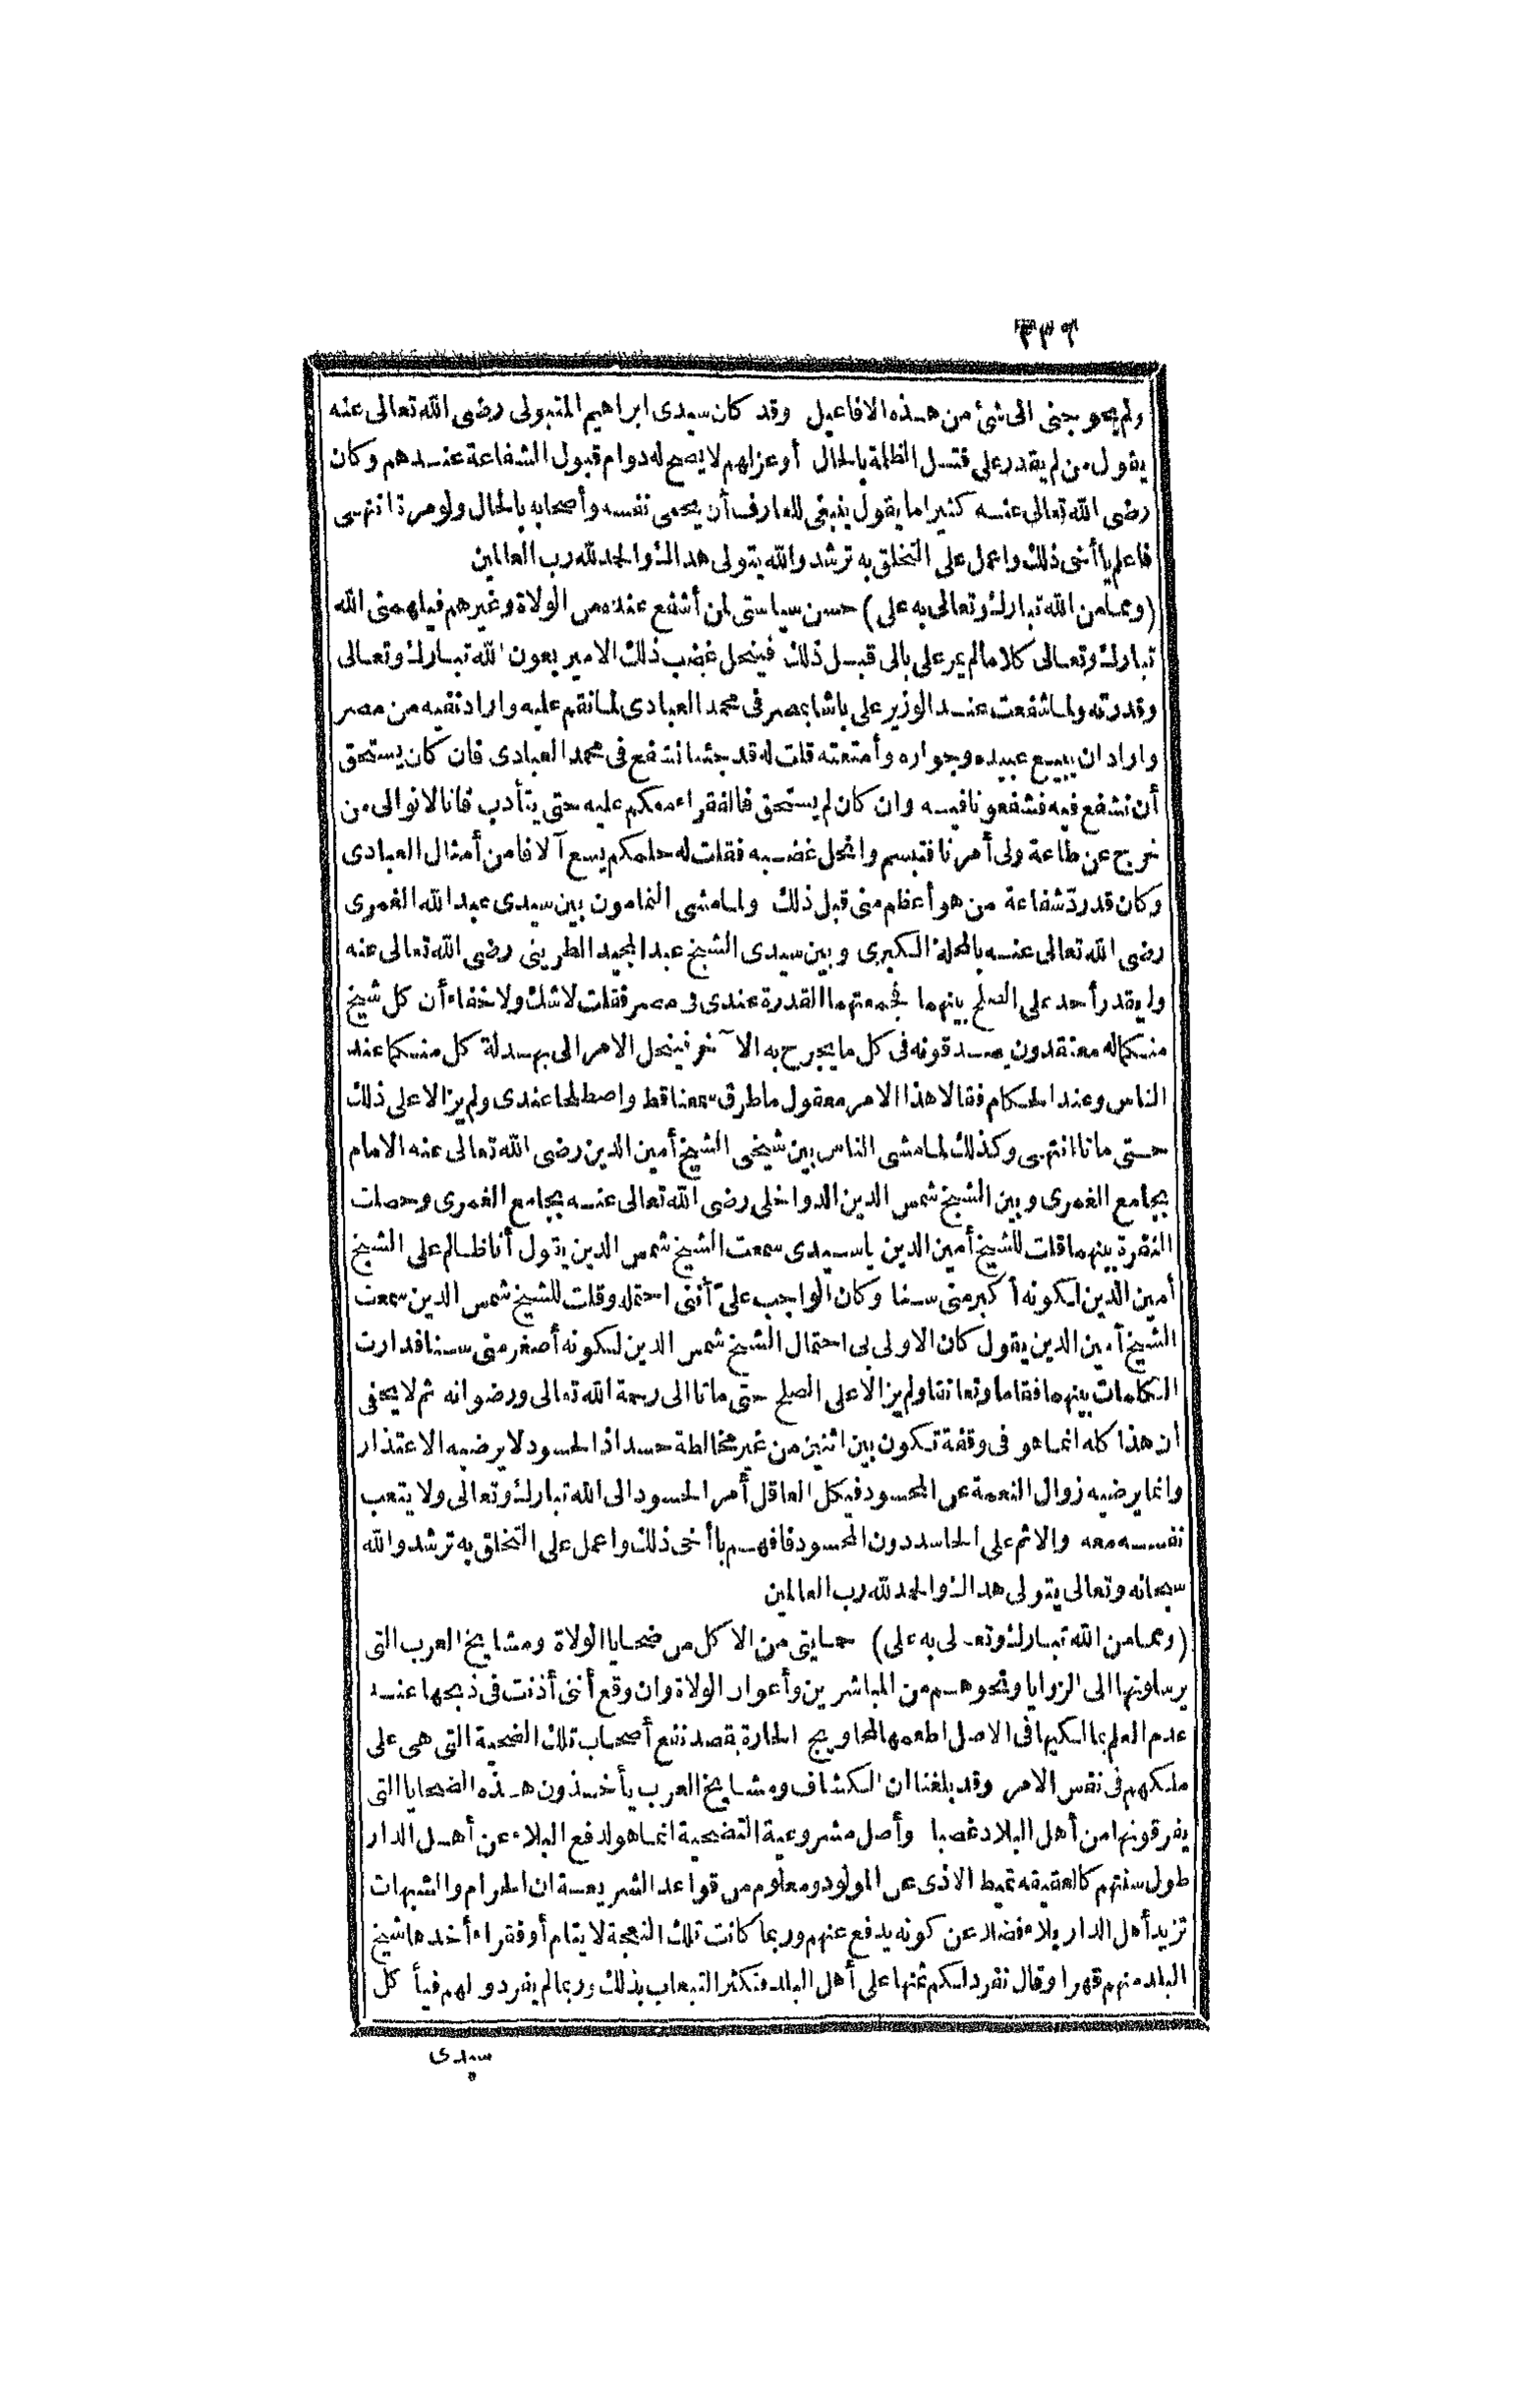 ٣٣٦
ولم يحوجنى الى شئ من هذه الافاعيل وقد كان سيدى ابراهيم المتبولى رضى الله تعالى عنه
يقول من لم يقدر على قتل الظلمة بالحال أو عزلهم لا يصح له دوام قبول الشفاعة عندهم وكان
رضى الله تعالى عنه كثيرا ما يقول ينبغى للعارف أن يحمى نفسه وأصحابه بالحال ولو مرة انتهى
فاعلم يا أخى ذلك واعمل على التخلق به ترشد والله يتولى هداك والحمد لله رب العالمين
(ومما من الله تبارك وتعالى به على) حسن سياستى لمن أشفع عنده من الولاة وغيرهم فيلهمنى الله
تبارك وتعالى كلاما لم يمر على بالى قبل ذلك فينحل غضب ذلك الامير بعون الله تبارك وتعالى
وقدرته ولما شفعت عند الوزير على باشا بمصر فى محمد العبادى لما نقم عليه واراد نفيه من مصر
واراد ان يبيع عبيده وجواره وأمتعته قلت له قد جئنا نشفع فى محمد العبادى فان كان يستحق
أن نشفع فيه فشفعونا فيه وان كان لم يستحق فالفقراء معكم عليه حتى يتأدب فانا لا نوالى من
خرج عن طاعة ولى أمرنا فتبسم وانحل غضبه فقلت له حلمكم يسع آلافا من أمثال العبادى
وكان قد ردّ شفاعة من هو أعظم منى قبل ذلك ولما مشى النمامون بين سيدى عبد الله الغمرى
رضى الله تعالى عنه بالمحلة الكبرى وبين سيدى الشيخ عبد المجيد الطرينى رضى الله تعالى عنه
ولم يقدر أحد على الصلح بينهما فجمعتهما القدرة عندى فى مصر فقلت لا شك ولا خفاء أن كل شيخ
منكما له معتقدون يصدقونه فى كل ما يجرح به الآخر فينحل الامر الى بهدلة كل منكما عند
الناس وعند الحكام فقالا هذا الامر معقول ما طرق سمعنا قط واصطلحا عندى ولم يزالا على ذلك
حتى ماتا انتهى وكذلك لما مشى الناس بين شيخى الشيخ أمين الدين رضى الله تعالى عنه الامام
بجامع الغمرى وبين الشيخ شمس الدين الدواخلى رضى الله تعالى عنه بجامع الغمرى وحصلت
النفرة بينهما قلت للشيخ أمين الدين يا سيدى سمعت الشيخ شمس الدين يقول أنا ظالم على الشيخ
أمين الدين لكونه أكبر منى سنا وكان الواجب علىّ أننى احتمله وقلت للشيخ شمس الدين سمعت
الشيخ أمين الدين يقول كان الاولى بى احتمال الشيخ شمس الدين لكونه أصغر منى سنا فدارت
الكلمات بينهما فقاما وتعانقا ولم يزالا على الصلح حتى ماتا الى رحمة الله تعالى ورضوانه ثم لا يخفى
أن هذا كله انما هو فى وقفة تكون بين اثنين من غير مخالطة حسد اذ الحسود لا يرضيه الاعتذار
وانما يرضيه زوال النعمة عن المحسود فيكل العاقل أمر الحسود الى الله تبارك وتعالى ولا يتعب
نفسه معه والاثم على الحاسد دون المحسود فافهم يا أخى ذلك واعمل على التخلق به ترشد والله
سبحانه وتعالى يتولى هداك والحمد لله رب العالمين
(ومما من الله تبارك وتعالى به على) حمايتى من الاكل من ضحايا الولاة ومشايخ العرب التى
يرسلونها الى الزوايا ونحوهم من المباشرين وأعوان الولاة وان وقع أننى أذنت فى ذبحها عند
عدم العلم بمالكيها فى الاصل اطعمها لمحاويج الحارة بقصد نفع أصحاب تلك الضحية التى هى على
ملكهم فى نفس الامر وقد بلغنا ان الكشاف ومشايخ العرب يأخذون هذه الضحايا التى
يفرقونها من أهل البلاد غصبا وأصل مشروعية التضحية انما هو لدفع البلاء عن أهل الدار
طول سنتهم كالعقيقه تميط الاذى عن المولود ومعلوم من قواعد الشريعة ان الحرام والشبهات
تزيد أهل الدار بلاء فضلا عن كونه يدفع عنهم وربما كانت تلك النعجة لايتام أو فقراء أخذها شيخ
البلد منهم قهرا وقال نفرد لكم ثمنها على أهل البلد فتكثر التبعات بذلك وربما لم يفردوا لهم شيأ كل
سيدى